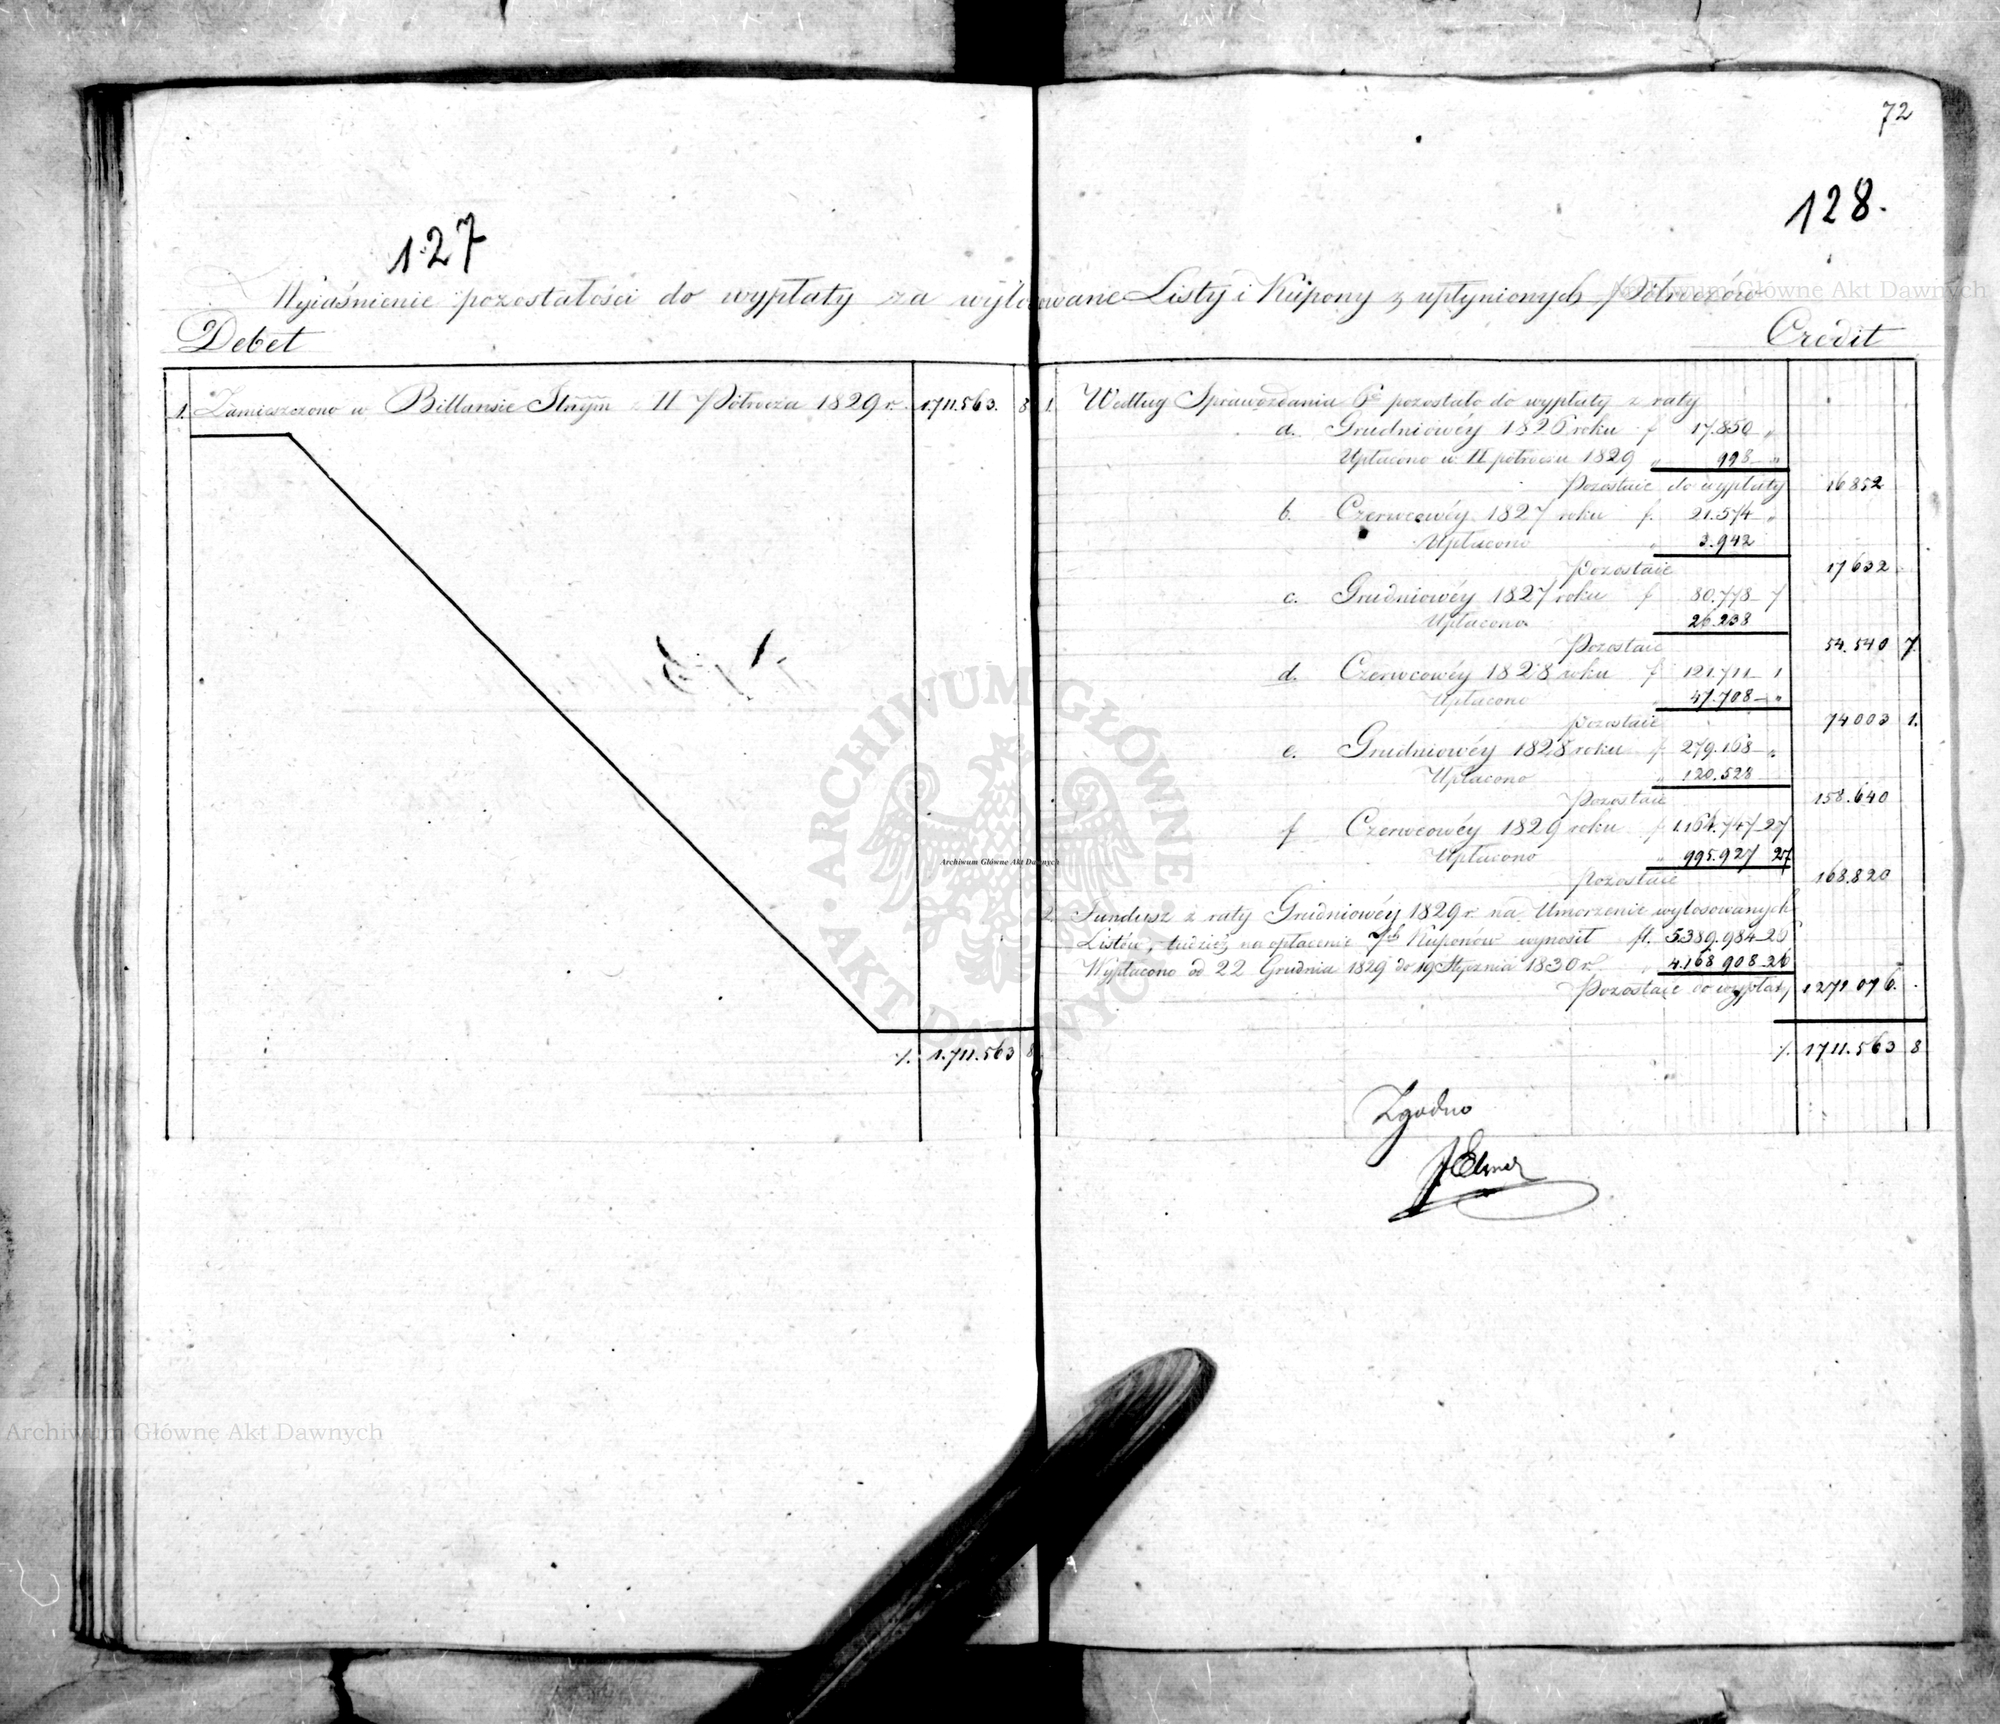 72
127
128.
Wyiaśnienie pozostałości do wypłaty za wylosowane Listy i Kupony z upłynionych Półroczów
Debet
Credit
1. Zamieszczono w Billansie Stnym z II Półrocza 1829 r. 1.711.563. 8
٪. 1.711.563 8
1. Według Sprawozdania 6o pozostało do wypłaty z raty
a. Grudniowéy 1826 roku f 17.850 „
Upłacono w II półroczu 1829 „ 998 „
Pozostaie do wypłaty 16852
b. Czerwcowéy 1827 roku f. 21.574 „
Upłacono „ 3.942
Pozostaie 17632
c. Grudniowéy 1827 roku f 80.778 7
Upłacono 26.238
Pozostaie 54.540 7
d. Czerwcowéy 1828 roku f 121.711 1
Upłacono 47.708 „
Pozostaie 74003 1.
e. Grudniowéy 1828 roku f 279.168 „
Upłacono „ 120.528
Pozostaie 158.640
f Czerwcowéy 1829 roku f 1.164.747 27
Upłacono „ 995.927 27
Pozostaie 168.820
2. Fundusz z raty Grudniowéy 1829 r. na Umorzenie wylosowanych
Listów, tudzież na opłacenie 7ch Kuponów wynosił fl. 5.389.984 26
Wypłacono od 22 Grudnia 1829 do 19 Stycznia 1830 r. „ 4.168 908 26
Pozostaie do wypłaty 1271 076.
٪. 1711.563 8
Zgodno
Archiwum Główne Akt Dawnych
Archiwum Główne Akt Dawnych
Archiwum Główne Akt Dawnych
ARCHIWUM GŁÓWNE AKT DAWNYCH